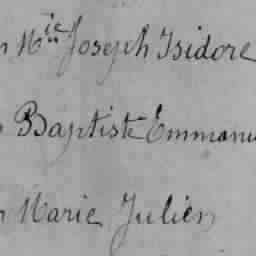 n M.ie Joseph Isidore
Baptiste Emmanu
n Marie Julien